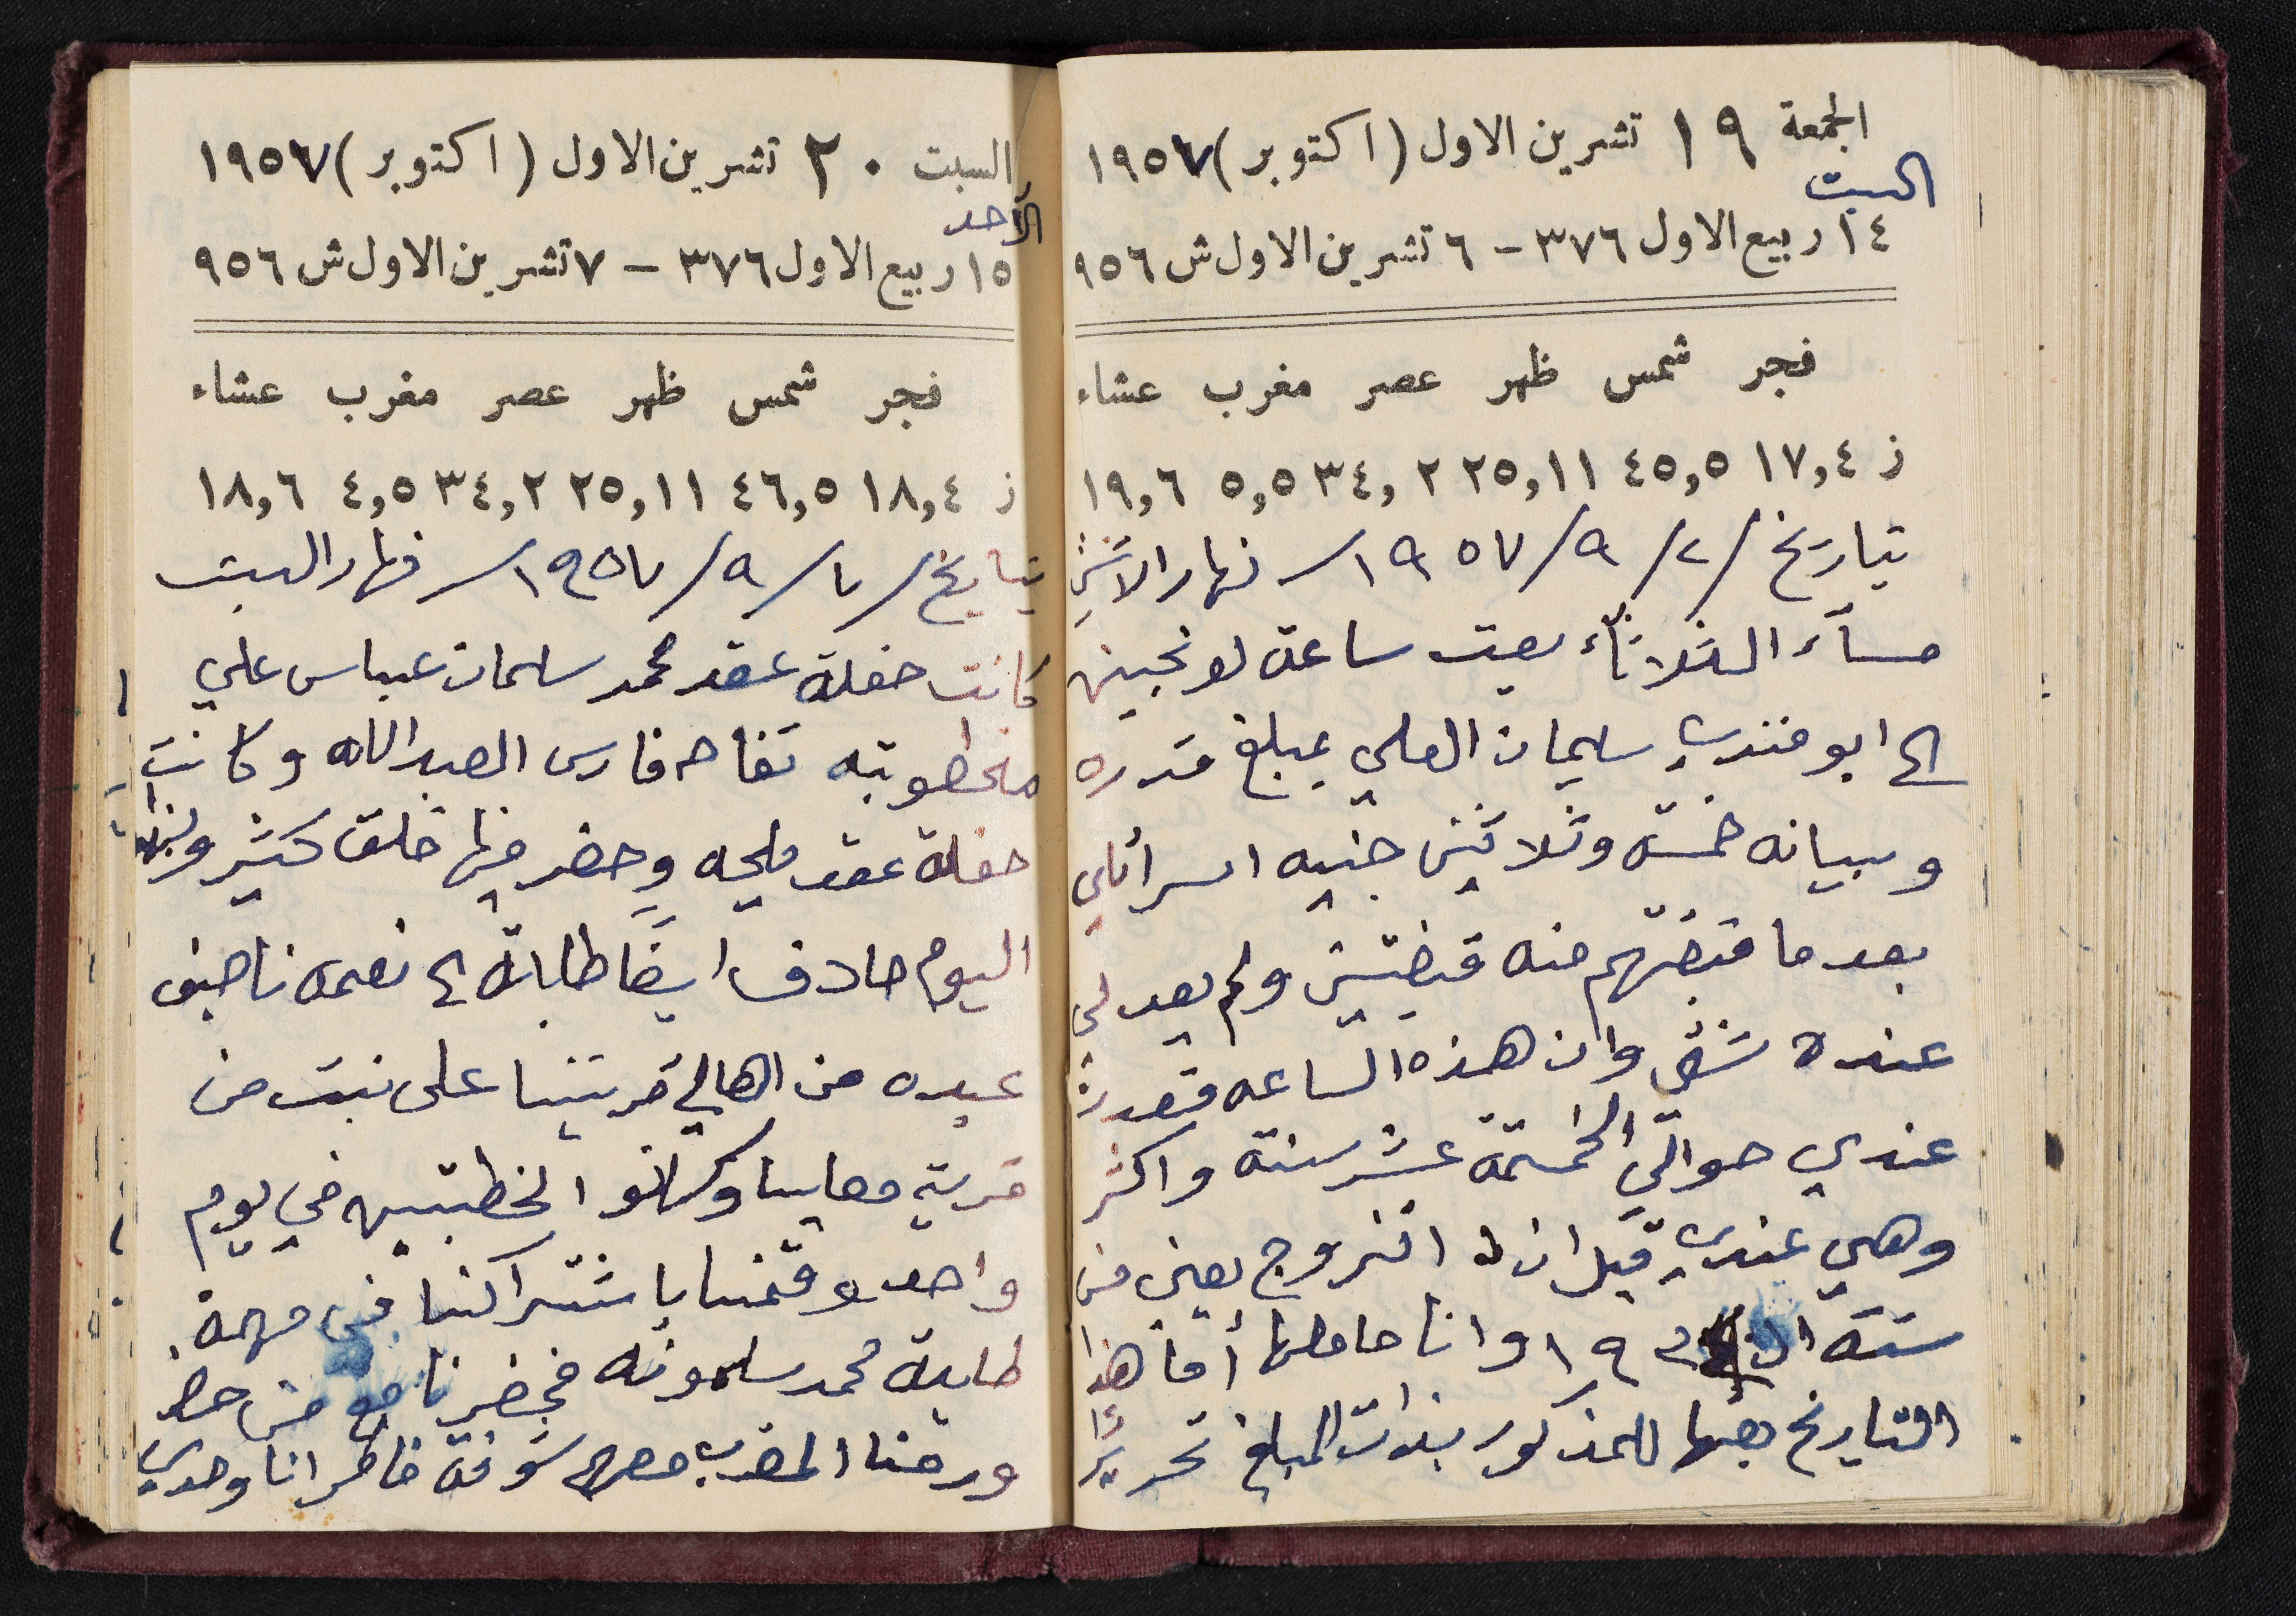 الجمعة ١٩ تشرين الاول (اكتوبر) ١٩٥٧
السبت
١٤ ربيع الاول ٣٧٦ – ٦ تشرين الاول ش ٩٥٦
فجر شمس ظهر عصر مغرب عشاء
ز ١٧,٤ ٤٥,٥ ٢٥,١١ ٣٤,٢ ٥,٥ ١٩,٦
بتاريخ /٢/٩/١٩٥٧ نهار الاثنين
مسآء الثلاثآء بعت ساعة لونجين
الى ابو فندي سليمان العلي بمبلغ قدره
وبيانه خمسة وثلاثين جنيه اسرائلي
بعد ما قبضتهم منه قبضتين ولم يعد لي
عنده شئ وان هذه الساعه قعدت
عندي حوالي الخمسة عشر سنة واكثر
وهي عندي قبل ان اتزوج يعني من
سنة ١٩ وانا حاملها أما هذا
التاريخ بعتها للمذكور بذات المبلغ تحريرًا
السبت ٢٠ تشرين الاول (اكتوبر) ١٩٥٧
الأحد
١٥ ربيع الاول ٣٧٦ – ٧ تشرين الاول ش ٩٥٦
فجر شمس ظهر عصر مغرب عشاء
ز ١٨,٤ ٤٦,٥ ٢٥,١١ ٣٤,٢ ٤,٥ ١٨,٦
بتاريخ /٧/٩/١٩٥٧ نهار السبت
كانت حفلة عقد محمد سلمان عباس علي
مخطوبته تفاحه فارس العبدالله وكانت
حفلة عقد مليحه وحضر فيها خلق كثير
اليوم صادف ايضًا طلبة الى نعمه ناصيف
عبده من اهالي قريتنا على بنت من
قرية معليا وكانو الخطبتين في يوم
واحد وقمنا باشتراكنا في مهمة
طلبة محمد سلمونه فحضرنا مع من حضر
ورحنا المغرب معهم شوفة خاطر انا وحدي